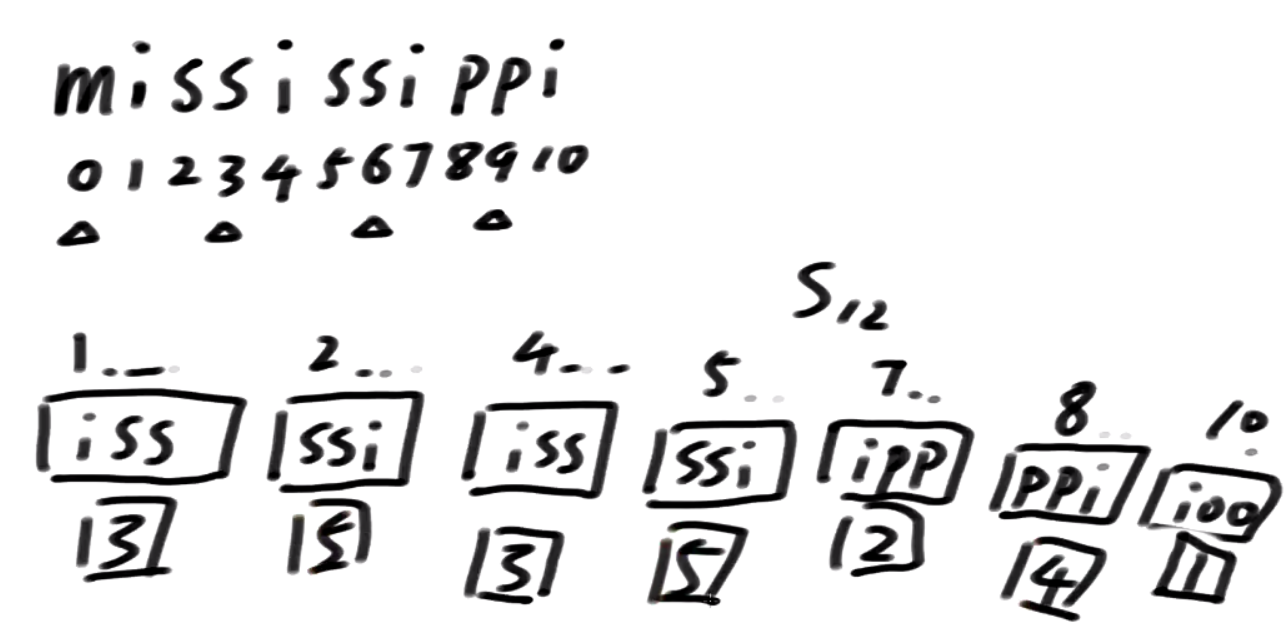 mississippi
0 1 2 3 4 5 6 7 8 9 10
S12
1... 2... 4... 5... 7.. 8.. 10
iss ssi iss ssi ipp ppi i00
3 5 3 5 2 4 1